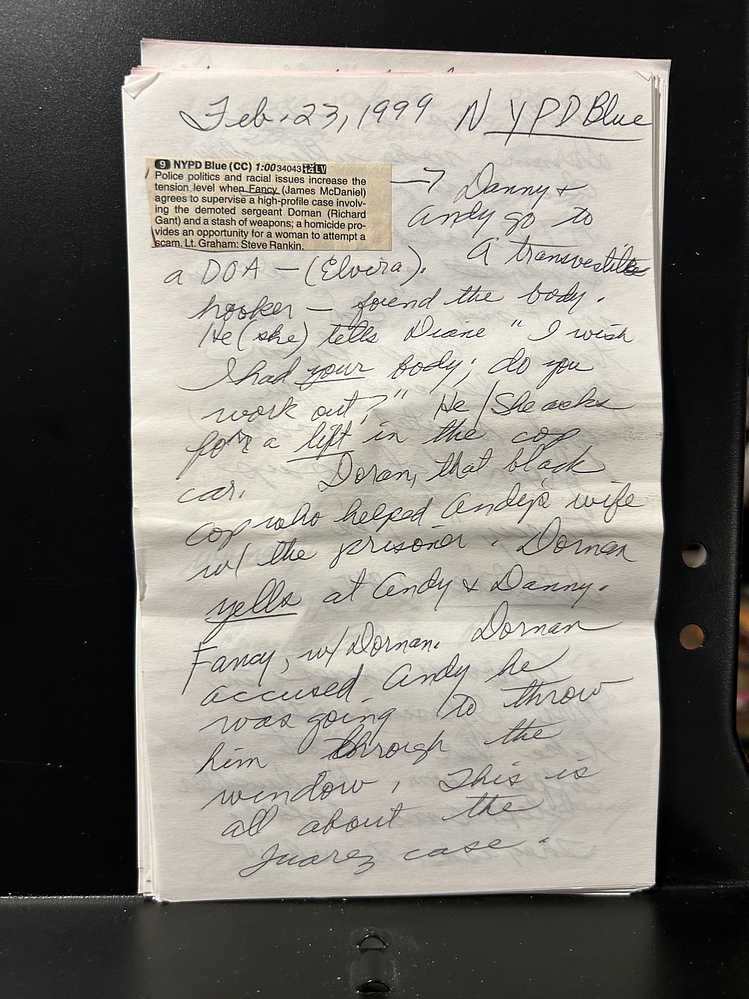 Feb. 23, 1999 NYPD Blue
9 NYPD Blue (CC) 1:00 34043 LV
Police politics and racial issues increase the
tension level when Fancy (James McDaniel)
agrees to supervise a high-profile case involv-
ing the demoted sergeant Dornan (Richard
Gant) and a stash of weapons; a homicide pro-
vides an opportunity for a woman to attempt a
scam. Lt. Graham: Steve Rankin.
→ Danny +
Andy go to
a DOA – (Elvira). A transvestite
hooker – found the body.
He (she) tells Diane "I wish
I had your body; do you
work out?" He/She asks
for a lift in the cop
car. Doran, that black
cop who helped Andy's wife
w/ the prisoner. Dornan
yells at Andy & Danny.
Fancy, w/ Dornan. Dornan
accused Andy he
was going to throw
him through the
window. This is
all about the
Juarez case.